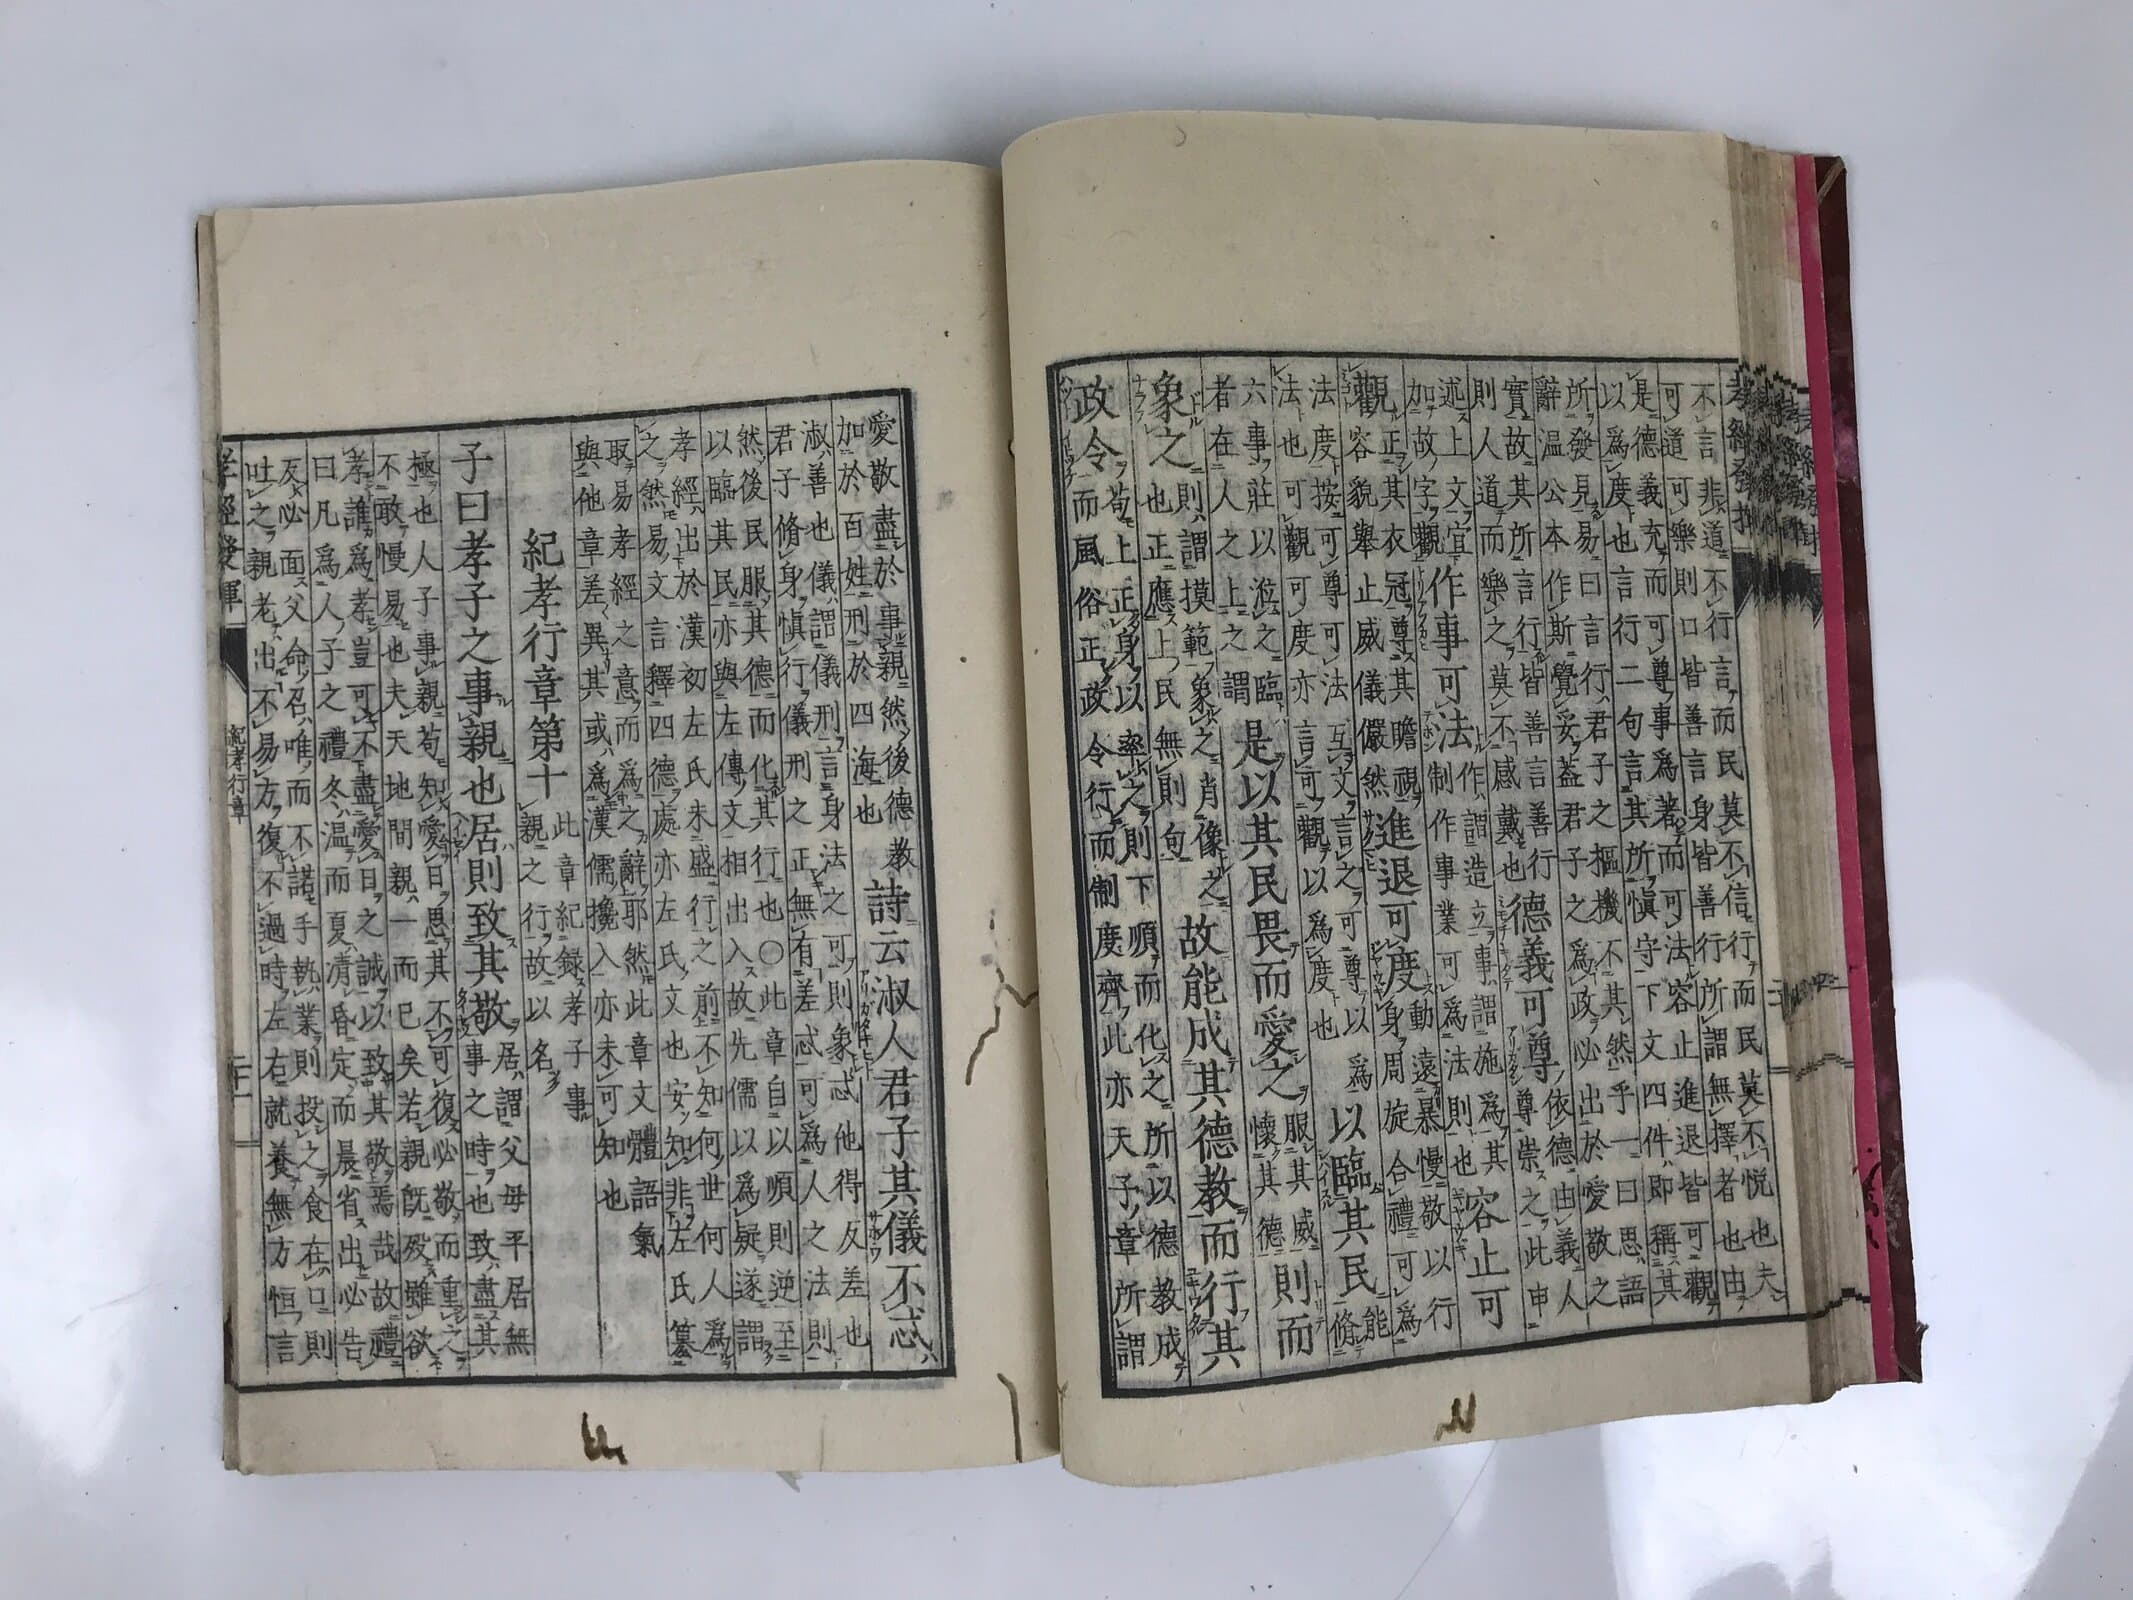 不言非道不行言而民莫不信行而民莫不悅也夫
可道可樂則口皆善言身皆善行所謂無擇者也由
是德義充而可尊事爲著而可法容止進退皆可觀
以爲度也言行二句言其所愼守下文四件即稱其
所發見易曰言行君子之樞機不其然乎一曰思語
辭溫公本作斯覺妥葢君子之爲政必出於愛敬之
實故其所言行皆善言善行
則人道而樂之莫不感戴也
德義可尊
依德由義人
尊崇之此申
述上文宜
加故字觀
作事可法
作謂造立事謂施爲其
制作事業可爲法則也
容止可
觀
正其衣冠尊其瞻視
容貌舉止威儀儼然
進退可度
動遠暴慢敬以行
身周旋合禮可爲
法度按可尊可法互文言之可尊以爲
法也可觀可度亦言可觀以爲度也
以臨其民
能脩
六事莊以涖之臨
者在人之上之謂
是以其民畏而愛之
服其威
懷其德
則而
象之
則謂摸範象之肖像之
也正應上民無則句
故能成其德教而行其
政令
苟上正身以率之則下順而化之所以德教成
而風俗正政令行而制度齊此亦天子章所謂
愛敬盡於事親然後德教
加於百姓刑於四海也
詩云淑人君子其儀不忒
淑善也儀謂儀刑言身法之可則象忒他得反差也
君子脩身愼行儀刑之正無有差忒可爲人之法則
然後民服其德而化其行也○此章自以順則逆至
以臨其民亦與左傳文相出入故先儒以爲疑遂謂
孝經出於漢初左氏未盛行之前不知何世何人爲
之然易文言釋四德處亦左氏文也安知非左氏纂
取易孝經之意而爲之辭耶然此章文體語氣
與他章差異其或爲漢儒攙入亦未可知也
紀孝行章第十
此章紀錄孝子事
親之行故以名
子曰孝子之事親也居則致其敬
居謂父母平居無
事之時也致盡其
極也人子事親苟知愛日思其不可復必敬而重之
不敢慢易也夫天地間親一而已矣若親旣歿雖欲
孝誰爲孝豈可不盡愛日之誠以致其敬焉哉故禮
曰凡爲人子之禮冬溫而夏凊昏定而晨省出必告
反必面父命召唯而不諾手執業則投之食在口則
吐之親老出不易方復不過時左右就養無方恒言
孝經發揮
紀孝行章